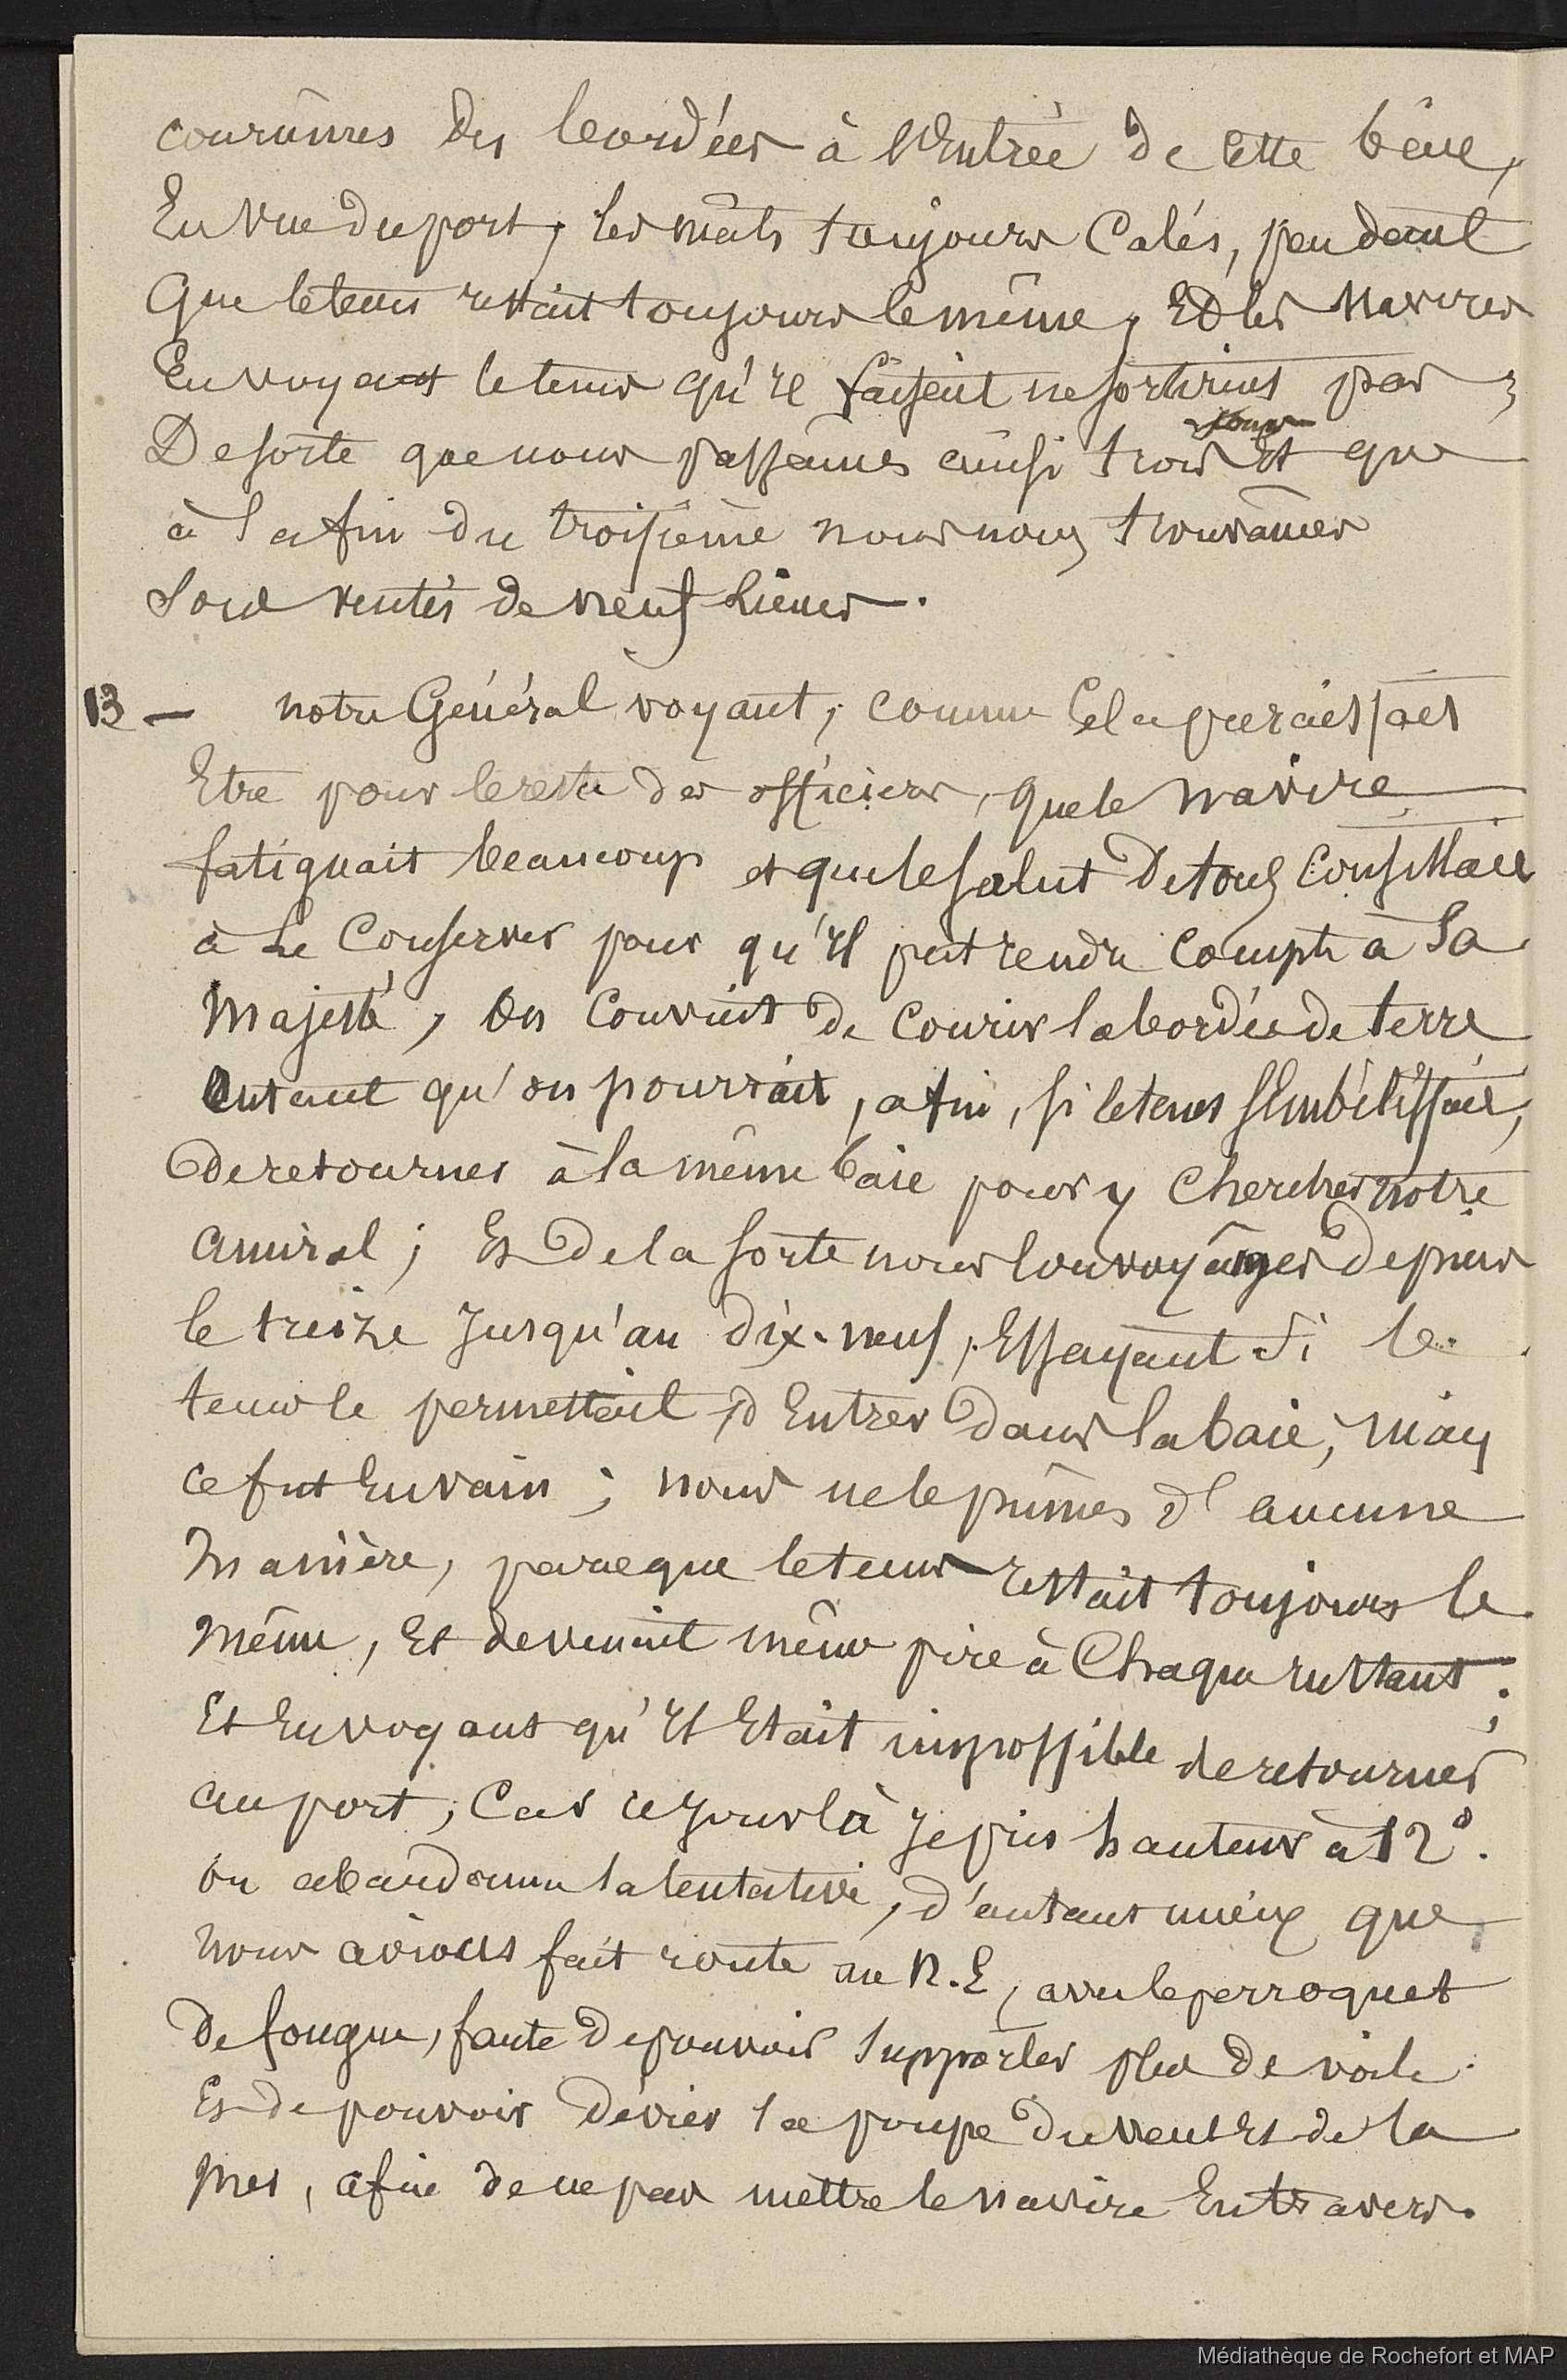 courûmes des bordées à l'Entrée de cette baie,
En vue du port, les mâts toujours Calés, pendant
Que le tems restait toujours le même, Et les Navires
En voyant le tems qu'il faisait ne sortirent pas ;
De sorte que nous passâmes ainsi trois jours Et que
à la fin du troisième nous nous trouvâmes
sous ventés de neuf Lieues.
13 — notre Général voyant, comme Cela paraissait
Etre pour le reste des officiers, que le Navire
fatiguait beaucoup et que le salut de tous Conseillait
à le Conserver pour qu'il put rendre Compte à Sa
Majesté, On Convint de Courir la bordée de terre
autant qu'on pourrait, afin, si le tems s'Embélissait,
de retourner à la même baie pour y Chercher notre
Amiral ; Et De la sorte nous louvoyâmes depuis
le treize Jusqu'au dix-neuf, Essayant si le
tems le permettait, d'Entrer dans la baie, Mais
ce fut En vain ; nous ne le pûmes d'aucune
Manière, parceque le tems restait toujours le
Même, Et devenait même pire à Chaque instant ;
Et En voyant qu'il Etait impossible de retourner
au port, Car ce Jour là Je pris hauteur à 52°.
on abandonna la tentative, d'autant mieux que
Nous avions fait route au N.E, avec le perroquet
De fougue, faute de pouvoir supporter plus de voile
Et de pouvoir dévier la poupe du vent Et de la
Mer, afin de ne pas mettre le navire En travers.
Médiathèque de Rochefort et MAP